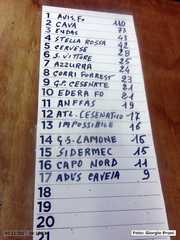 1 AVIS. FO 110
2 CAVA 73
3 ENDAS 43
4 STELLA ROSSA 42
5 CERVESE 28
6 S. VITTORE 25
7 AZZURRA 24
8 CORRI FORREST 23
9 G.P. CESENATE 21
10 EDERA FO 21
11 ANFFAS 19
12 ATL. CESENATICO 17
13 IMPOSSIBILE 16
14 G.S. LAMONE 15
15 SIDERMEC 15
16 CAPO NORD 11
17 ADVS CAVEIA 9
18
19
20
21
Foto: Giorgio Pronti